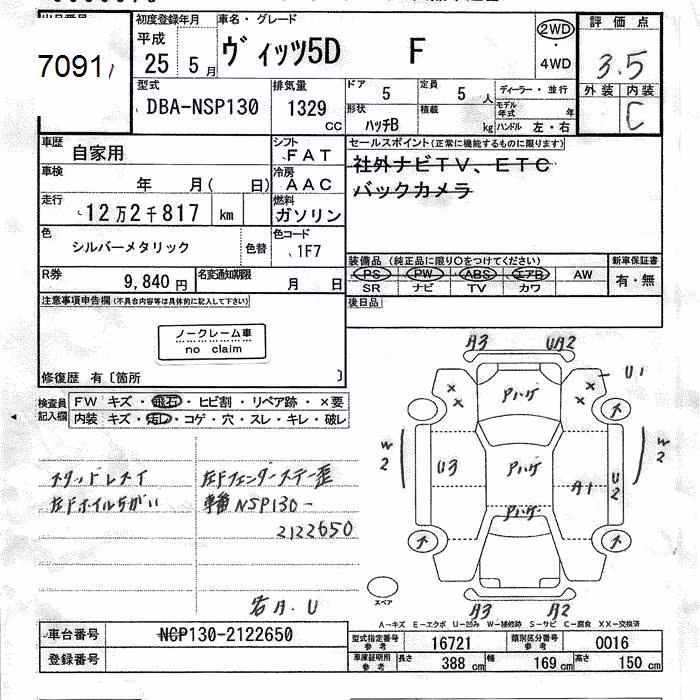 7091
初度登録年月
平成
25年 5月
車名・グレード
ヴィッツ5D F
2WD
・
4WD
評価点
3.5
外装 内装
C
型式
DBA-NSP130
排気量
1329
CC
ドア
5
定員
5 人
形状
ハッチB
積載
kg
ディーラー・並行
モデル年式 年
ハンドル 左・右
車歴
自家用
シフト
FAT
車検
年 月( 日)
冷房
AAC
走行
12万2千817 km
燃料
ガソリン
色
シルバーメタリック
色替
色コード
1F7
R券
9,840円
名変通知期限
月 日
セールスポイント(正常に機能するものに限ります)
社外ナビTV、ETC
バックカメラ
装備品(純正品に限り○をつけてください)
新車保証書
PS PW ABS エアB AW
SR ナビ TV カワ
有・無
後日品
注意事項申告欄(不具合内容等は具体的に記入して下さい)
ノークレーム車
no claim
修復歴 有〔箇所 〕
検査員記入欄
FW キズ・飛石・ヒビ割・リペア跡・×要
内装 キズ・汚レ・コゲ・穴・スレ・キレ・破レ
スタッドレスタイ
左Fホイルちがい
左Fフェンダーステー歪
車番 NSP130-
2122650
A3 UA2
U1
アハゲ
W2
U3
アハゲ
A1
U2
W2
アハゲ
A3 A2
スペア
A-キズ E-エクボ U-凹み W-補修跡 S-サビ C-腐食 XX-交換済
車台番号
NCP130-2122650
登録番号
型式指定番号
参考
16721
類別区分番号
参考
0016
車庫証明用
参考
長さ 388 cm 幅 169 cm 高さ 150 cm